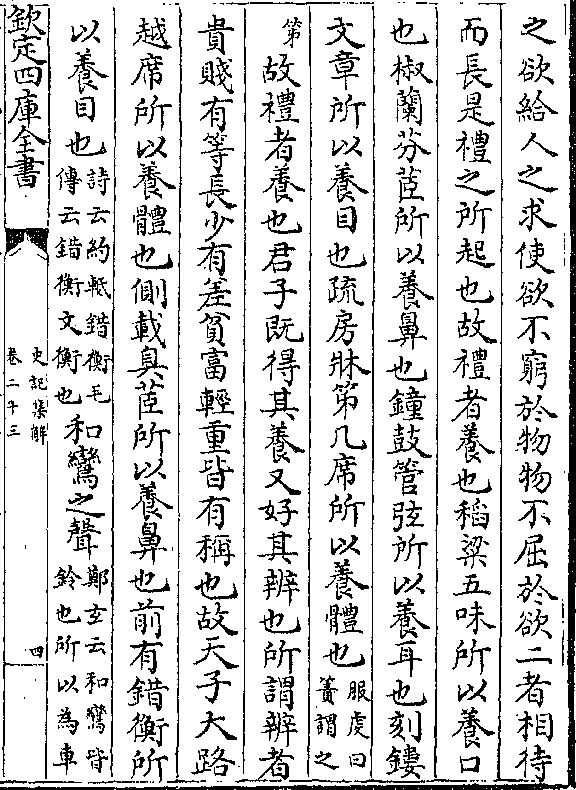 之欲給人之求使欲不窮於物物不屈於欲二者相待
而長是禮之所起也故禮者養也稻粱五味所以養口
也椒蘭芬茝所以養鼻也鐘鼓管弦所以養耳也刻鏤
文章所以養目也疏房牀第几席所以養體也服虔曰簀謂之
第故禮者養也君子既得其養又好其辨也所謂辨者
貴賤有等長少有差貧富輕重皆有稱也故天子大路
越席所以養體也側載臭茝所以養鼻也前有錯衡所
以養目也詩云約軝錯衡毛傳云錯衡文衡也和鸞之聲鄭玄云和鸞皆鈴也所以為車
欽定四庫全書
史記集解
卷二十三
四